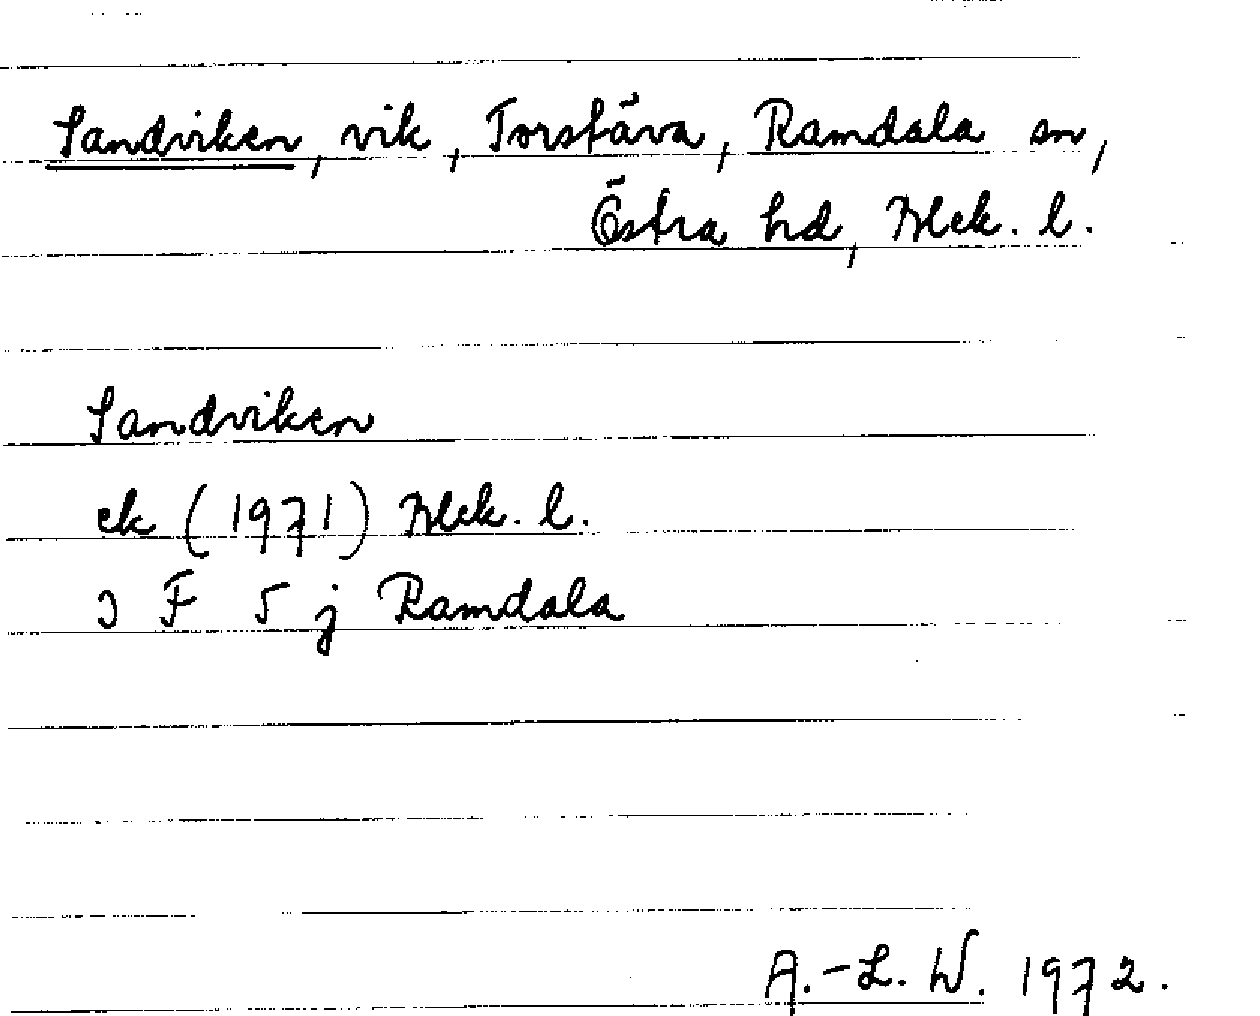 Sandviken, vik, Torstäva, Ramdala sn,
Östra hd, Blek. l.
Sandviken
ek (1971) Blek. l.
3 F 5 j Ramdala
A.-L. W. 1972.